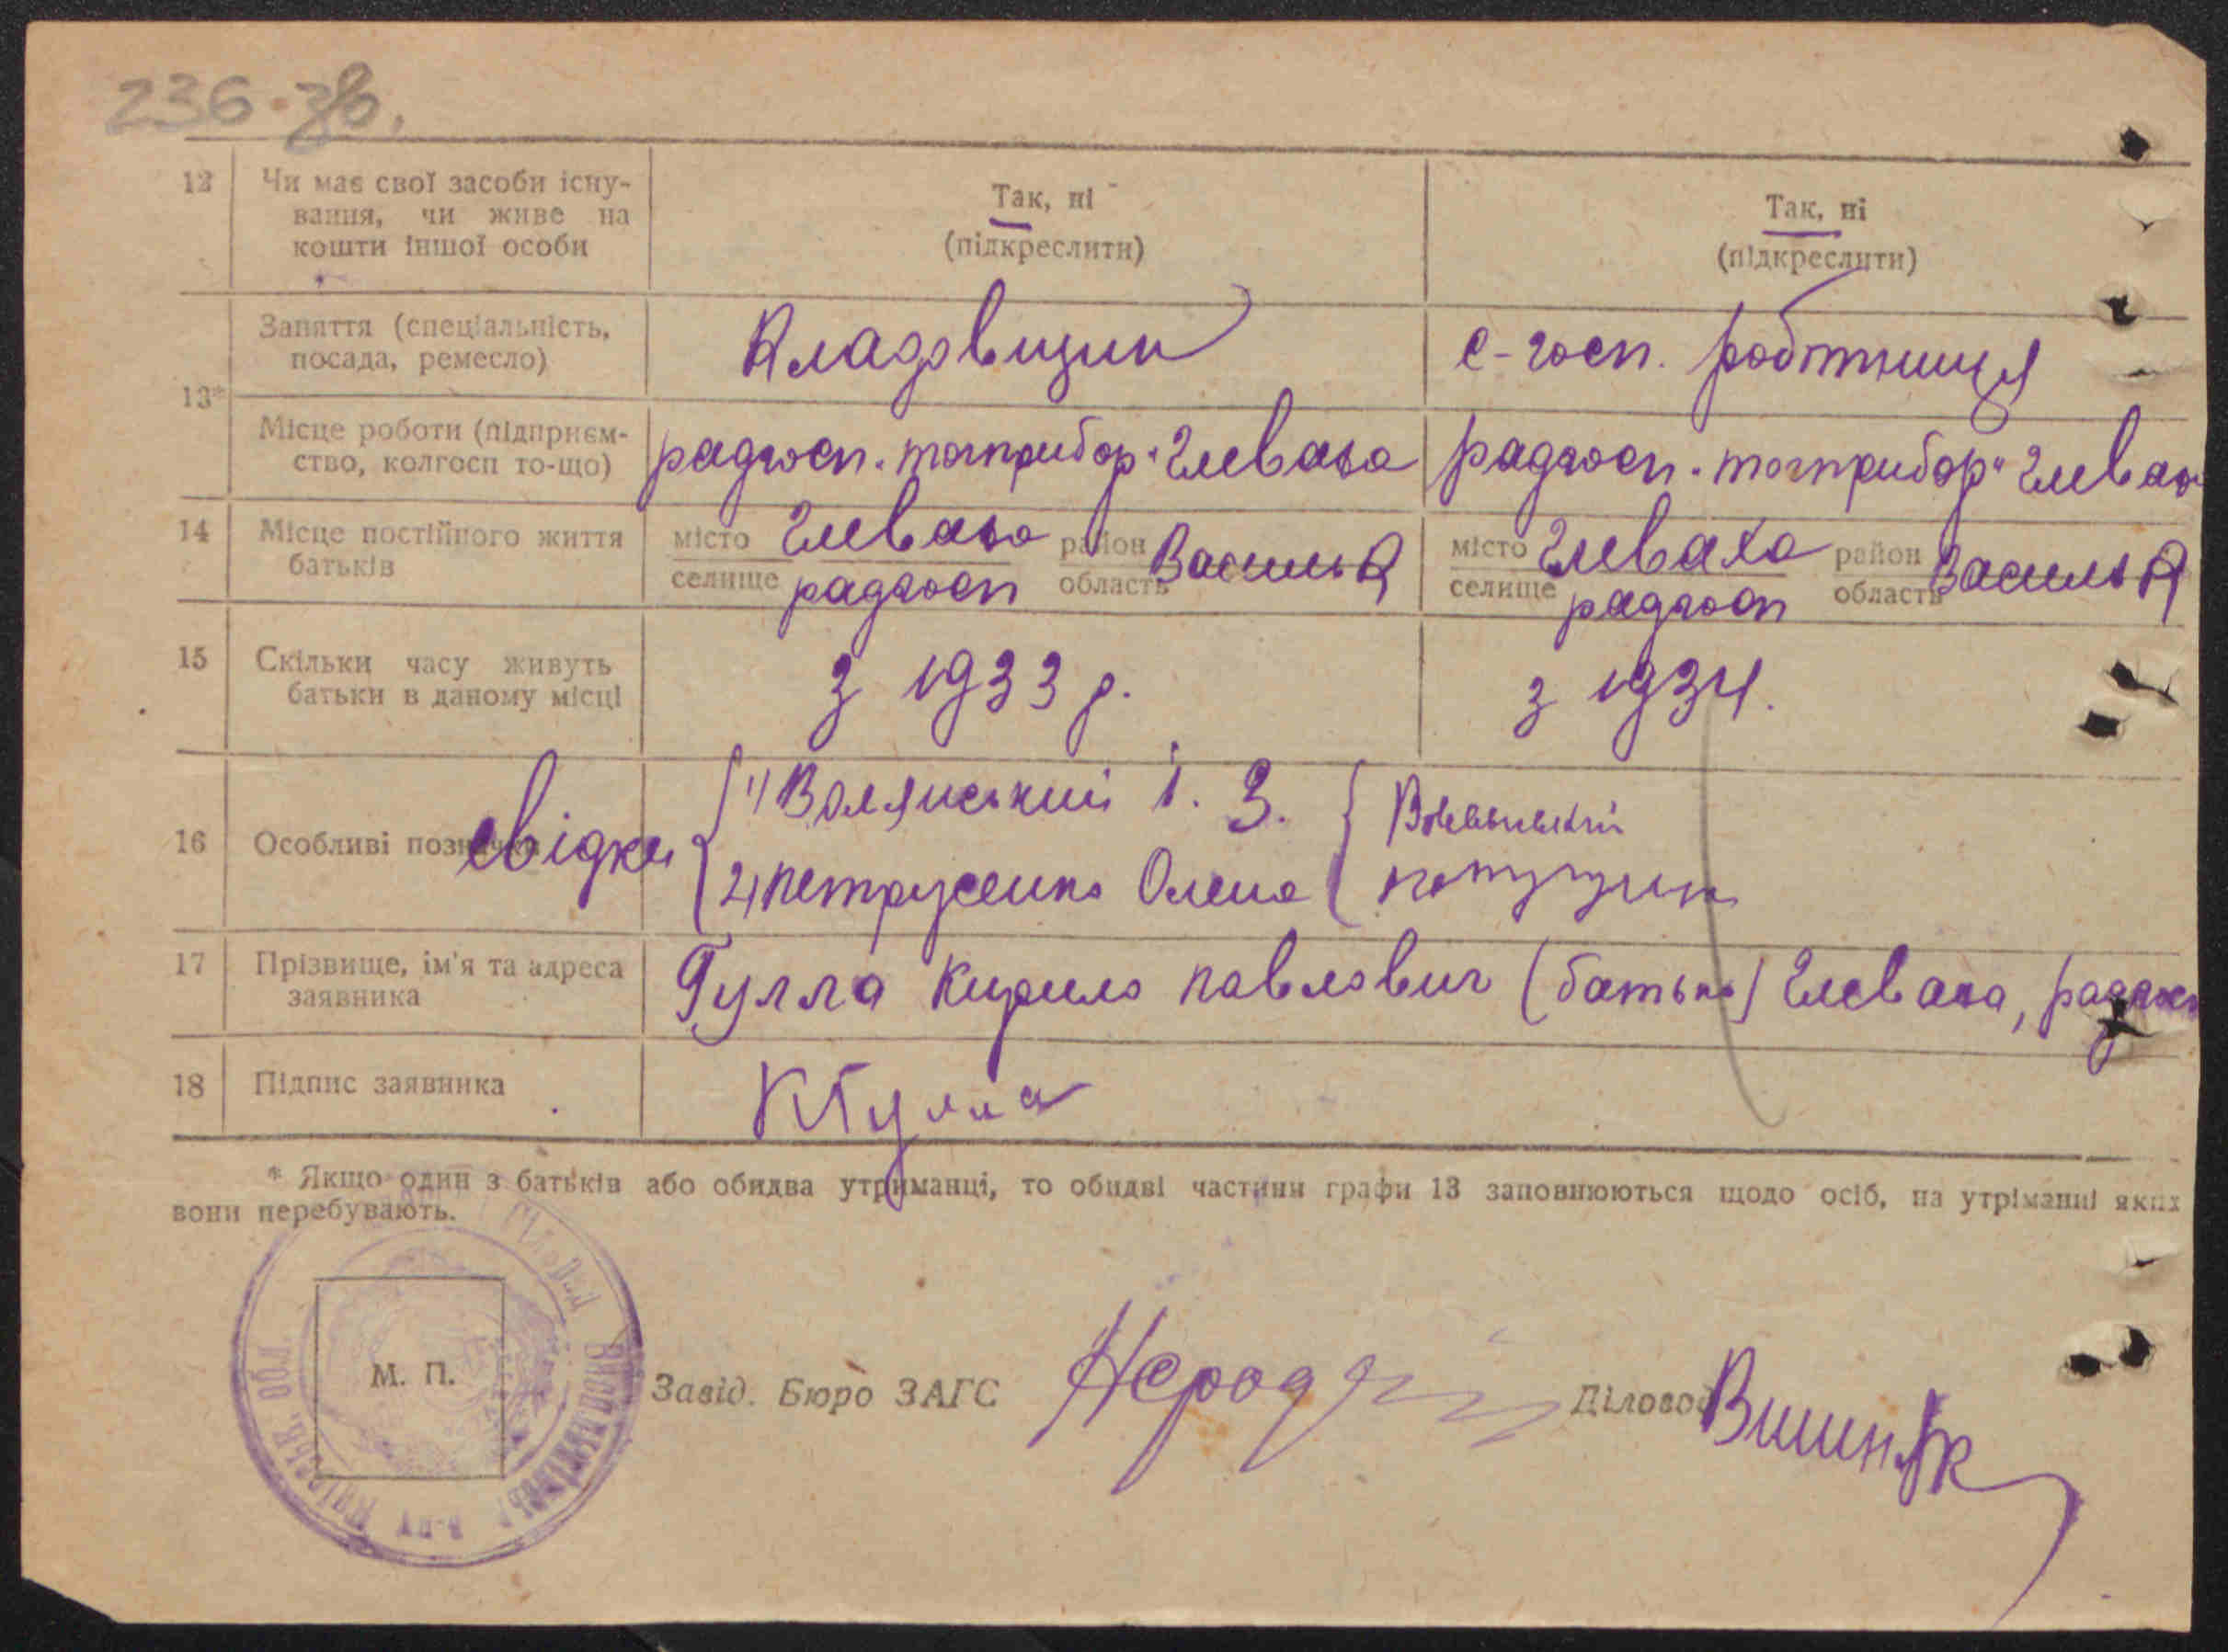 236 зв.
12 Чи має свої засоби існу- Так, ні Так, ні
вання, чи живе на (підкреслити) (підкреслити)
кошти іншої особи
13* Заняття (спеціальність, Кладовщик с-госп. робітниця
посада, ремесло)
Місце роботи (підприєм- радгосп "точприбор" Глеваха радгосп "точприбор" Глевах
ство, колгосп то-що)
14 Місце постійного життя місто Глеваха район місто Глеваха район
батьків селище радгосп область Василь селище радгосп область Василь
15 Скільки часу живуть з 1933 р. з 1934.
батьки в даному місці
1) Волянський І. З.
16 Особливі позначки свідки
2) Петрусенко Олена
17 Прізвище, ім'я та адреса Гулла Кирило Павлович (батько) Глеваха, радгосп
заявника
18 Підпис заявника КГулла
* Якщо один з батьків або обидва утриманці, то обидві частини графи 13 заповнюються щодо осіб, на утріманні яких
вони перебувають.
М. П.
Завід. Бюро ЗАГС Діловод Вишняк